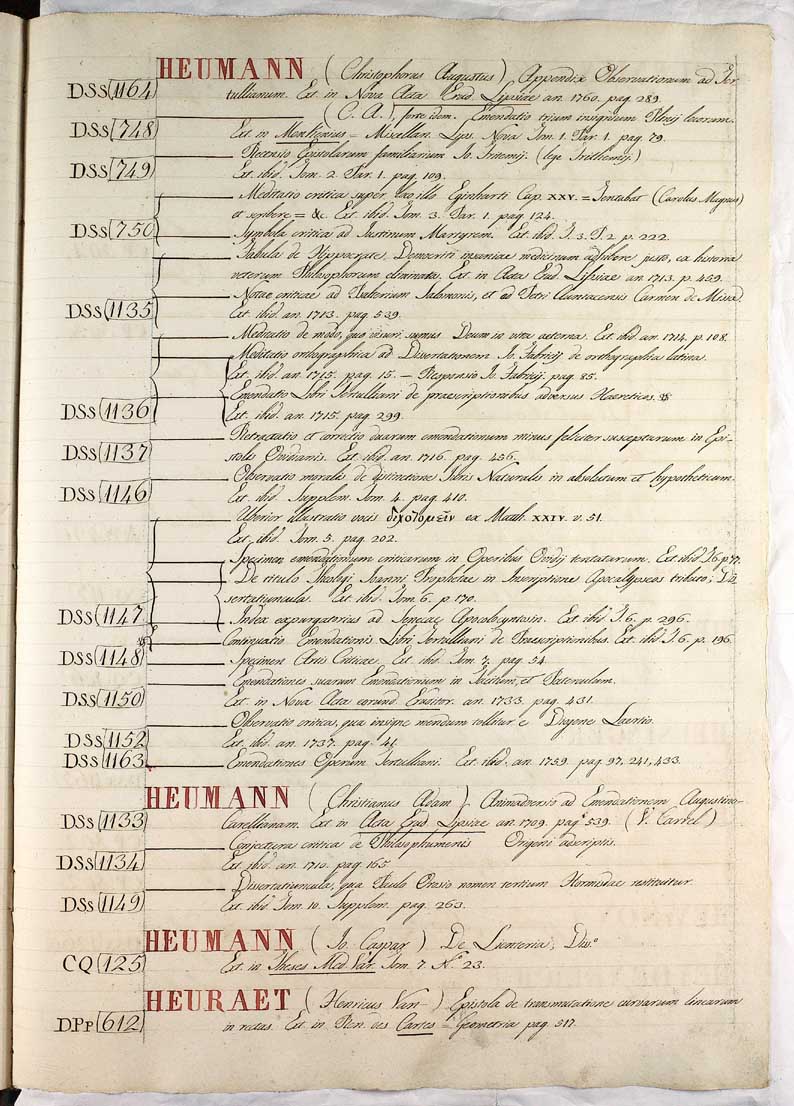 HEUMANN (Christophorus Augustus) Appendix Observationum ad Ter-
DSs 1164 tullianum. Ext. in Nova Acta Erud. Lipsiae an. 1760. pag. 289.
(C. A.), forte idem. Emendatio trium insignium Plinij locorum.
DSs 748 Ext. in Menkenius = Miscellan. Lyps. Nova Tom. 1. Par. 1. pag. 79.
Recensio Epistolarum familiarium Jo. Tritemij. (lege Trithemij.)
DSs 749 Ext. ibid. Tom. 2. Par. 1. pag. 109.
Meditatio critica super loco illo Eginharti Cap. XXV. = Tentabat (Carolus Magnus)
et scribere = &c. Ext. ibid. Tom. 3. Par. 1. pag. 124.
DSs 750 Symbola critica ad Justinum Martyrem. Ext. ibid. T. 3. P. 2. p. 222.
Fabula de Hippocrate, Democriti insaniae medicinam adhibere jusso, ex historia
veterum Philosophorum eliminata. Ext. in Acta Erud. Lipsiae an. 1713. p. 459.
Notae criticae ad Psalterium Salomonis, et ad Petri Cuntacensis Carmen de Missa.
DSs 1135 Ext. ibid. an. 1713. pag. 539.
Meditatio de modo, quo visuri sumus Deum in vita aeterna. Ext. ibid. an. 1714. p. 108.
Meditatio orthographica ad Dissertationem Jo. Fabricij de orthographia latina.
Ext. ibid. an. 1715. pag. 15. — Responsio Jo. Fabricij. pag. 85.
Emendatio Libri Tertulliani de praescriptionibus adversus Haereticos.
DSs 1136 Ext. ibid. an. 1715. pag. 299.
Retractatio et correctio duarum emendationum minus feliciter susceptarum in Epi-
DSs 1137 stolis Ovidianis. Ext. ibid. an. 1716. pag. 456.
Observatio moralis de distinctione Juris Naturalis in absolutum et hypotheticum.
DSs 1146 Ext. ibid. Supplem. Tom. 4. pag. 410.
Uberior illustratio vocis διχοτομεῖν ex Matth. XXIV. v. 51.
Ext. ibid. Tom. 5. pag. 202.
Specimen emendationum criticarum in Operibus Ovidij tentatarum. Ext. ibid. T. 6. p. 77.
De titulo Theologi Joanni Prophetae in Inscriptione Apocalypseos tributo; Dis-
sertatiuncula. Ext. ibid. Tom. 6. p. 170.
DSs 1147 Index expurgatorius ad Senecae Apocolocyntosin. Ext. ibid. T. 6. p. 296.
Continuatio Emendationis Libri Tertulliani de Praescriptionibus. Ext. ibid. T. 6. p. 196.
DSs 1148 Specimen Artis Criticae. Ext. ibid. Tom. 7. pag. 34.
Emendationes suarum Emendationum in Tacitum, et Paterculum.
DSs 1150 Ext. in Nova Acta eorund. Eruditor. an. 1733. pag. 431.
Observatio critica, qua insigne mendum tollitur e Diogene Laertio.
DSs 1152 Ext. ibid. an. 1737. pag. 41.
DSs 1163 Emendationes Operum Tertulliani. Ext. ibid. an. 1759. pag. 97, 241, 433.
HEUMANN (Christianus Adam) Animadversio ad Emendationem Augustino-
DSs 1133 Carellianam. Ext. in Acta Erud. Lipsiae an. 1709. pag. 539. (V. Carrel)
Conjectura critica de Philosophumenis Origeni adscriptis.
DSs 1134 Ext. ibid. an. 1710. pag. 165.
Dissertatiuncula, qua Paulo Orosio nomen tertium Hormisdae restituitur.
DSs 1149 Ext. ibid. Tom. 10. Supplem. pag. 263.
HEUMANN (Jo. Caspar) De Lienteria; Diss.o
CQ 125 Ext. in Theses Med. Var. Tom. 7. N.º 23.
HEURAET (Henricus Vant-) Epistola de transmutatione curvarum linearum
DPp 612 in rectas. Ext. in Ren. des Cartes = Geometria pag. 517.